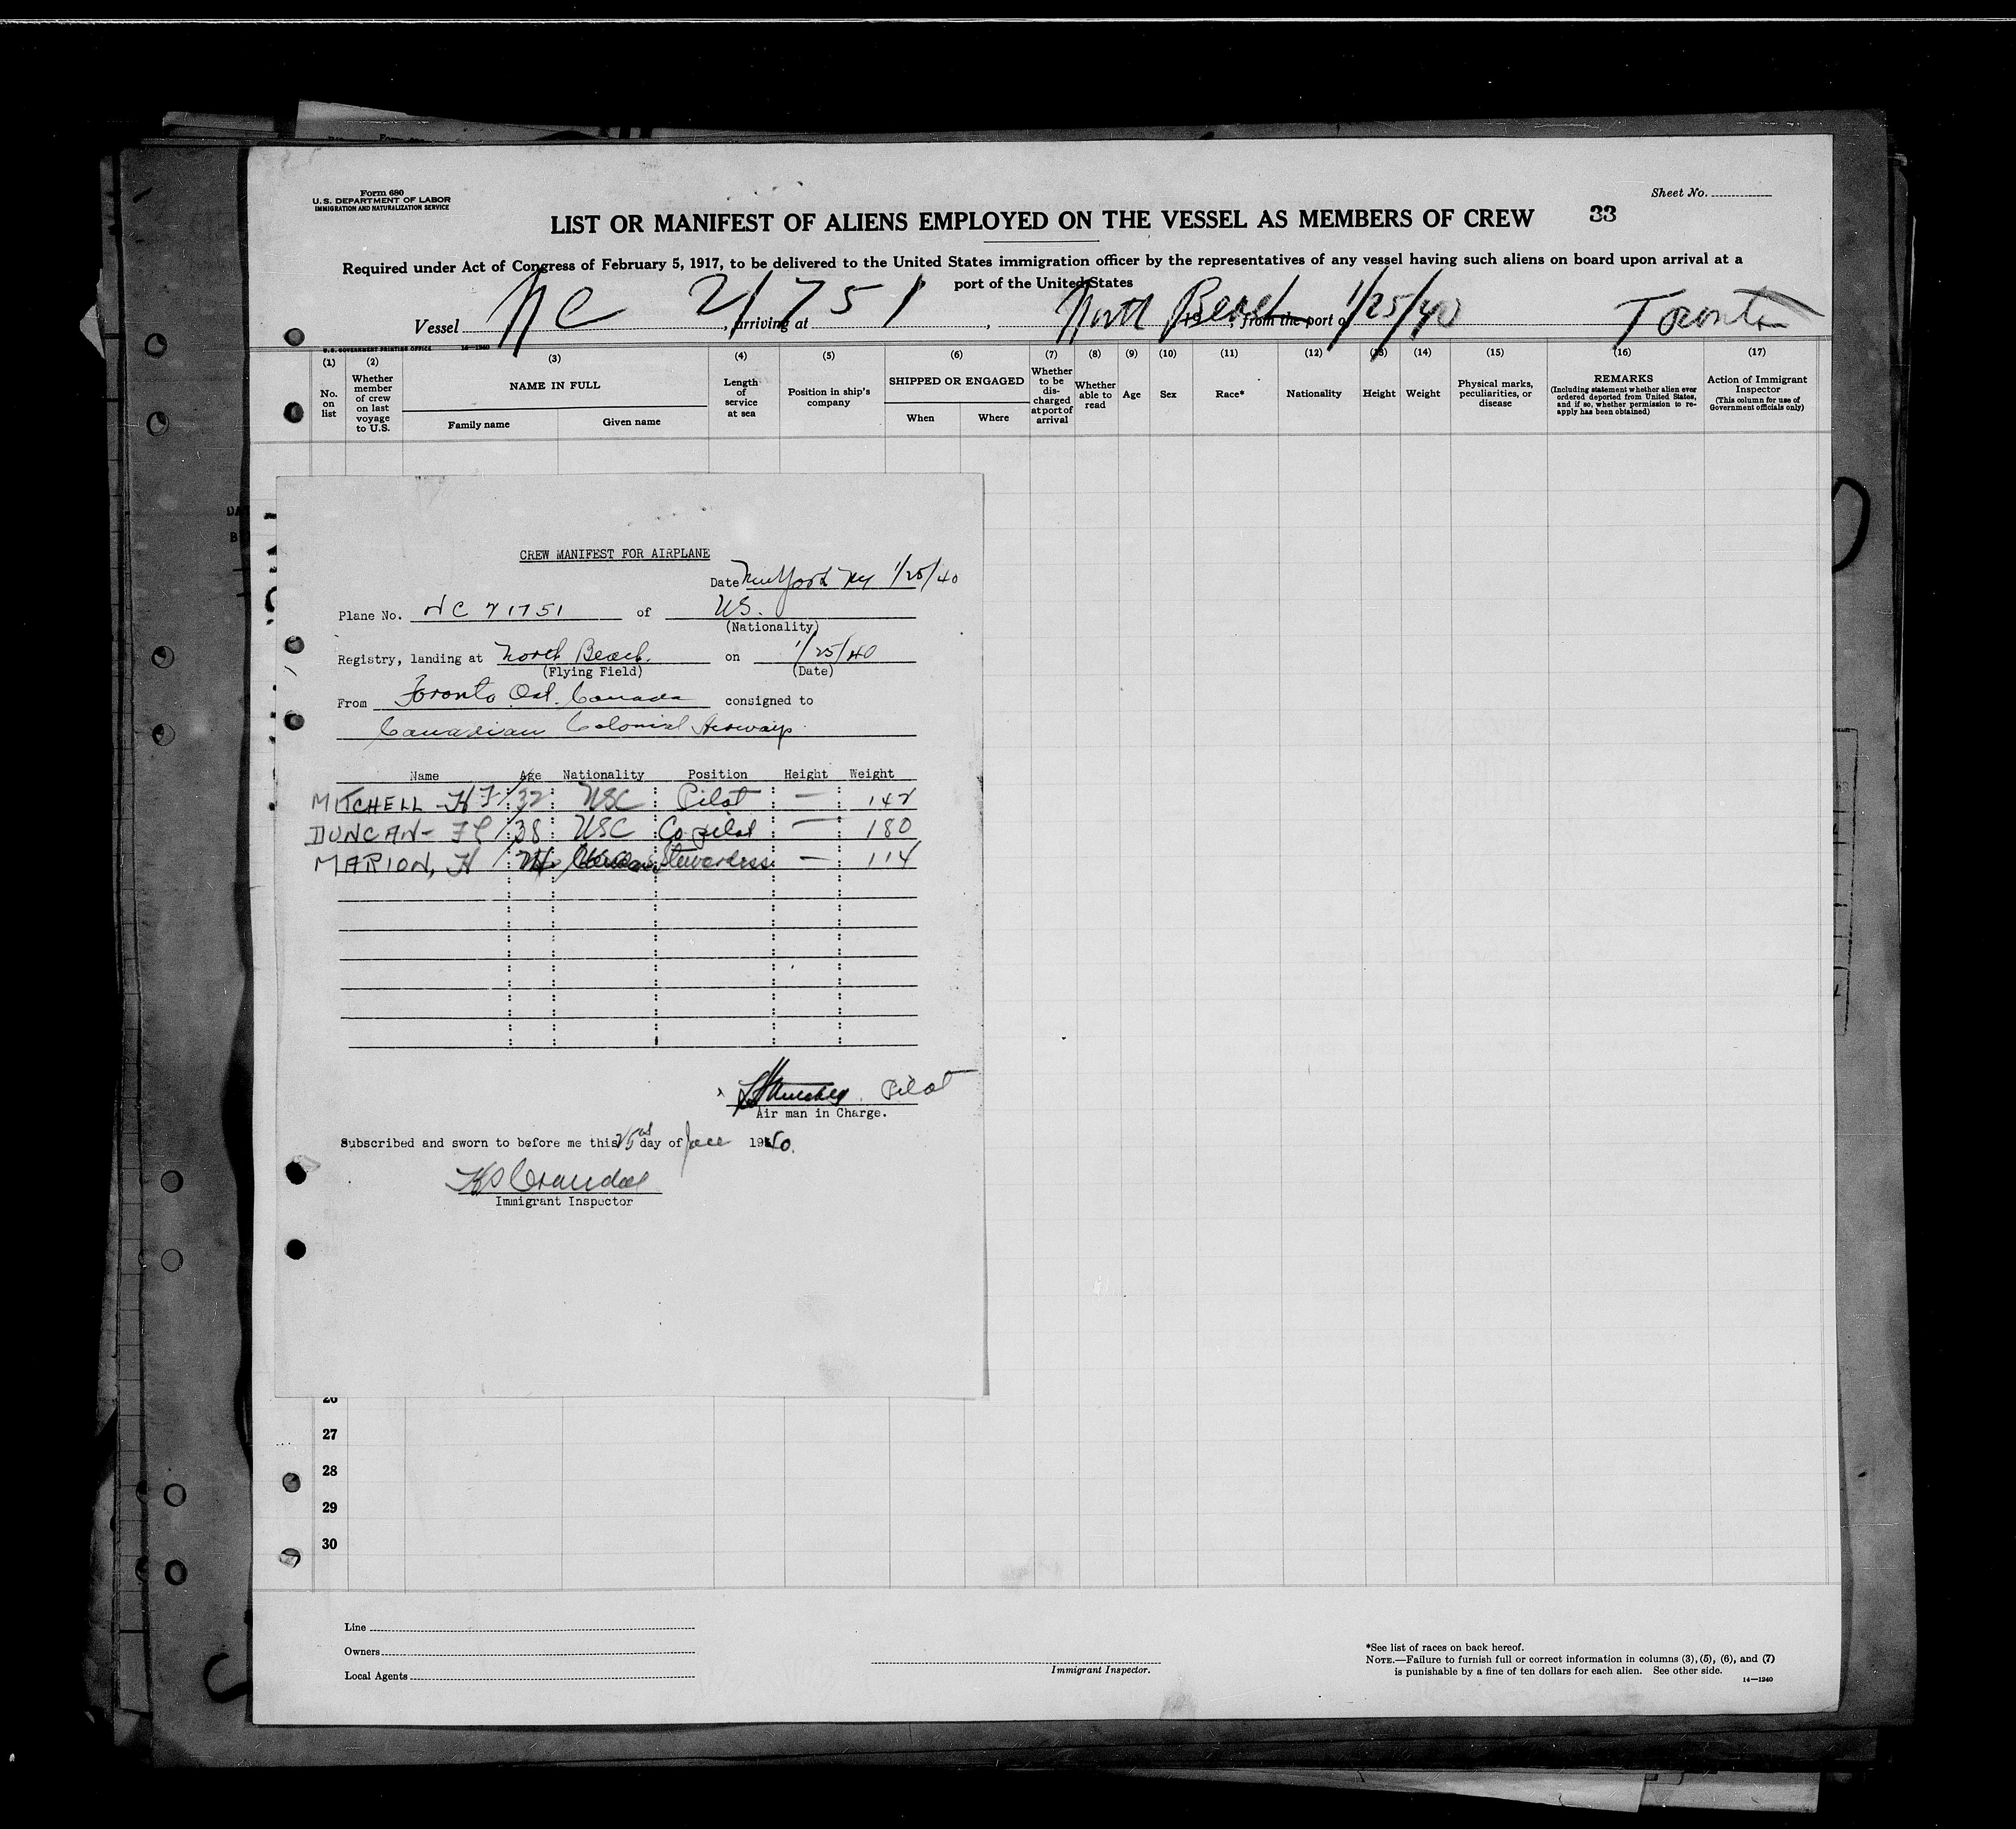 Form 680
U.S. DEPARTMENT OF LABOR
IMMIGRATION AND NATURALIZATION SERVICE
Sheet No.
LIST OR MANIFEST OF ALIENS EMPLOYED ON THE VESSEL AS MEMBERS OF CREW 33
Required under Act of Congress of February 5, 1917, to be delivered to the United States immigration officer by the representatives of any vessel having such aliens on board upon arrival at a
port of the United States
Vessel NC 21751, arriving at , North Beach, from the port o 1/25/40 Toronto
U.S. GOVERNMENT PRINTING OFFICE 14—1240
(1) (2) (3) (4) (5) (6) (7) (8) (9) (10) (11) (12) (13) (14) (15) (16) (17)
No. on list
Whether member of crew on last voyage to U.S.
NAME IN FULL
Family name
Given name
Length of service at sea
Position in ship's company
SHIPPED OR ENGAGED
When
Where
Whether to be discharged at port of arrival
Whether able to read
Age
Sex
Race*
Nationality
Height
Weight
Physical marks, peculiarities, or disease
REMARKS
(Including statement whether alien ever ordered deported from United States, and if so, whether permission to reapply has been obtained)
Action of Immigrant Inspector
(This column for use of Government officials only)
CREW MANIFEST FOR AIRPLANE
Date New York NY 1/25/40
Plane No. NC 21751 of US.
(Nationality)
Registry, landing at North Beach. on 1/25/40
(Flying Field) (Date)
From Toronto Ont. Canada consigned to
Canadian Colonial Airways
Name Age Nationality Position Height Weight
MITCHELL - H F 32 USC Pilot — 142
DUNCAN - F C 38 USC Co pilot — 180
MARION, H Stewardess — 114
Pilot
Air man in Charge.
Subscribed and sworn to before me this 25 day of Jan 1940.
Crandall
Immigrant Inspector
26
27
28
29
30
Line
Owners
Local Agents
Immigrant Inspector.
*See list of races on back hereof.
NOTE.—Failure to furnish full or correct information in columns (3), (5), (6), and (7)
is punishable by a fine of ten dollars for each alien. See other side.
14—1240